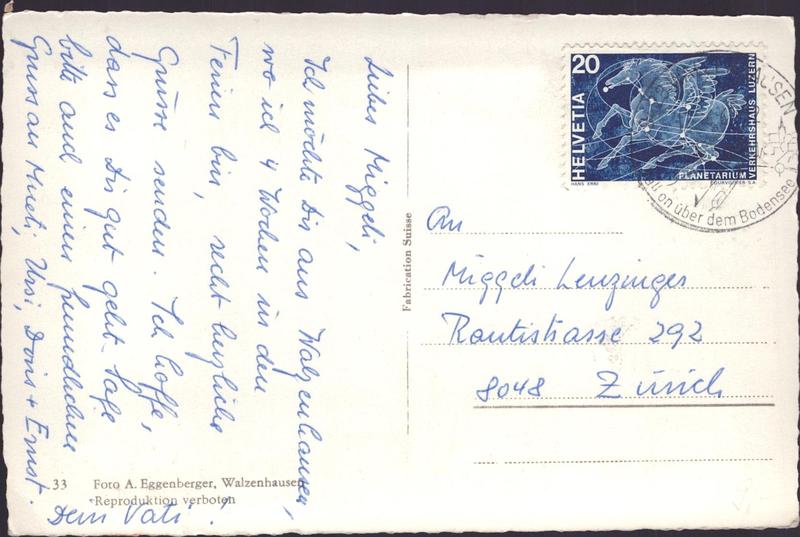 Liebes Miggeli,
Ich möchte Dir aus Walzenhausen,
wo ich 4 Wochen in den
Ferien bin, recht herzliche
Grüsse senden. Ich hoffe,
dass es Dir gut geht. Sage
bitte auch einen freundlichen
Gruss an Mueti, Ursi, Doris + Ernst.
Dein Vati!
33 Foto A. Eggenberger, Walzenhausen
Reproduktion verboten
Fabrication Suisse
20
HELVETIA
PLANETARIUM
VERKEHRSHAUS LUZERN
HANS ERNI
COURVOISIER S.A.
on über dem Bodensee
An
Miggeli Lenzinger
Rautistrasse 292
8048 Zürich